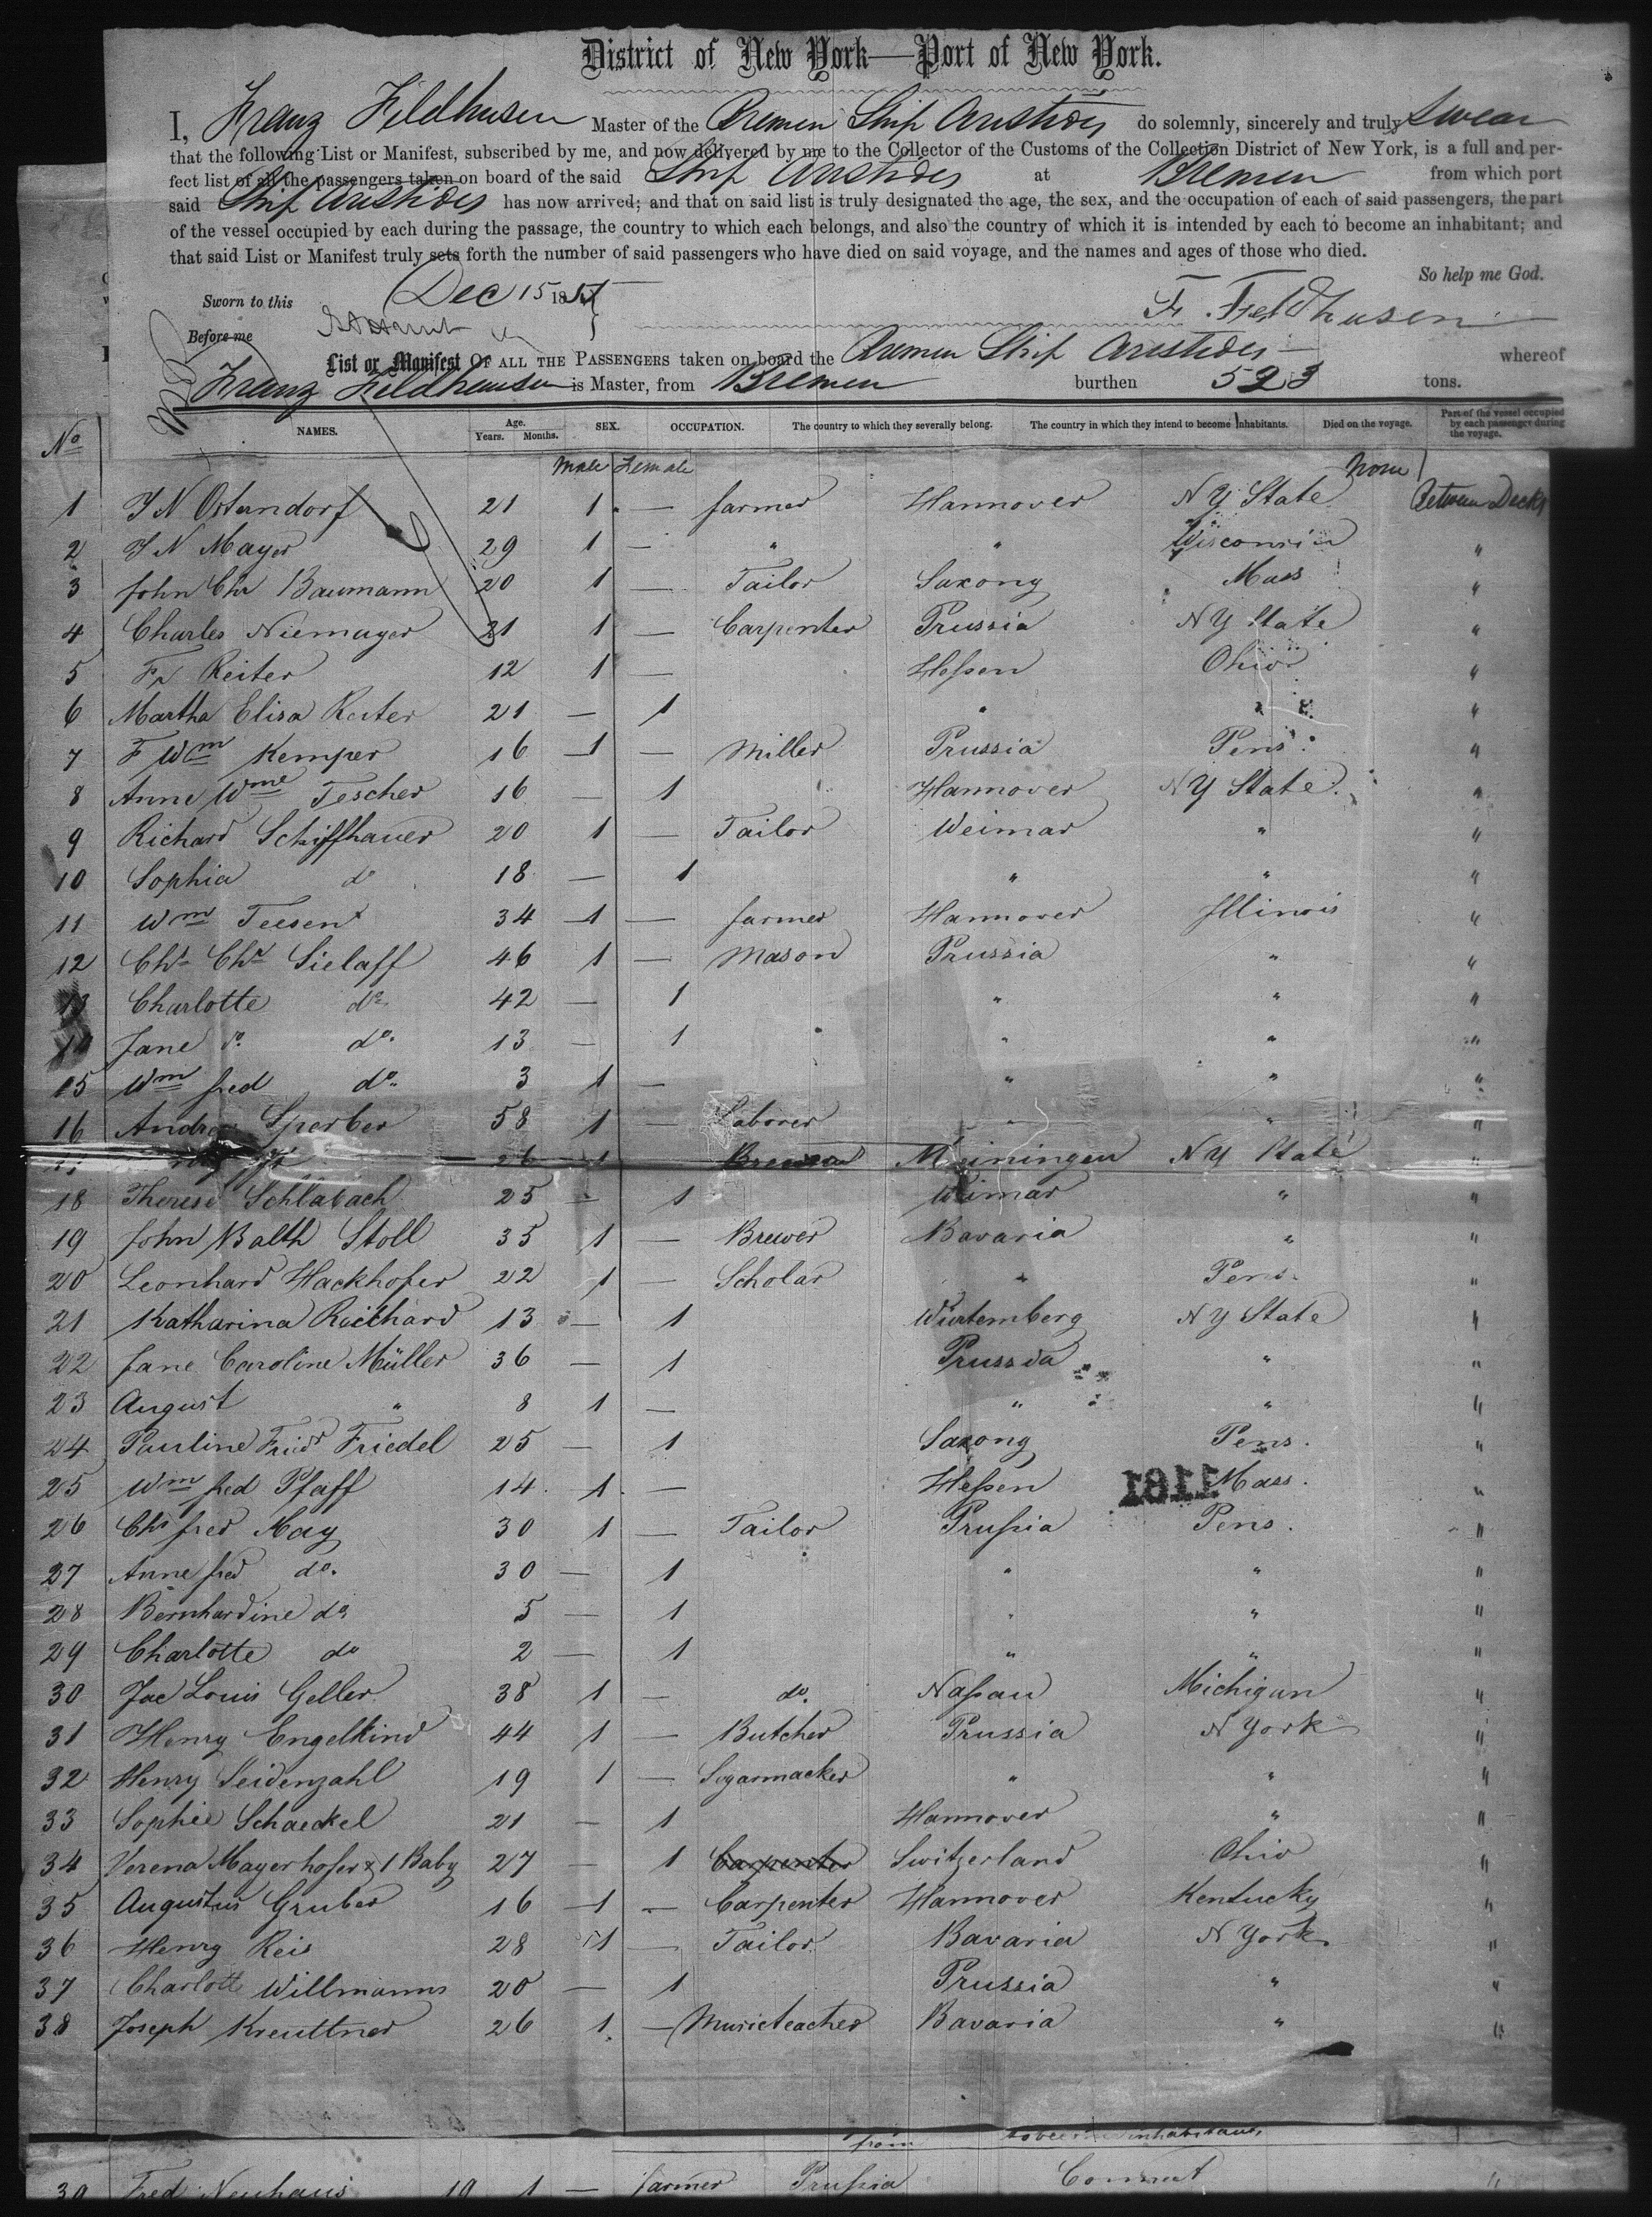 District of New York—Port of New York.
I, Franz Feldhusen Master of the Bremen Ship Aristides do solemnly, sincerely and truly swear
that the following List or Manifest, subscribed by me, and now delivered by me to the Collector of the Customs of the Collection District of New York, is a full and per-
fect list of all the passengers taken on board of the said Ship Aristides at Bremen from which port
said Ship Aristides has now arrived; and that on said list is truly designated the age, the sex, and the occupation of each of said passengers, the part
of the vessel occupied by each during the passage, the country to which each belongs, and also the country of which it is intended by each to become an inhabitant; and
that said List or Manifest truly sets forth the number of said passengers who have died on said voyage, and the names and ages of those who died.
So help me God.
Sworn to this Dec 15 185
F. Feldhusen
Before me
List or Manifest OF ALL THE PASSENGERS taken on board the Bremen Ship Aristides whereof
Franz Feldhusen is Master, from Bremen burthen 523 tons.
No NAMES. Age. Years. Months. SEX. OCCUPATION. The country to which they severally belong. The country in which they intend to become Inhabitants. Died on the voyage. Part of the vessel occupied by each passenger during the voyage.
Male Female None
1 J N Ostendorf 21 1 — farmer Hannover N Y State Between Decks
2 J N Mayer 29 1 — " " Wisconsin "
3 John Chr Baumann 20 1 — Tailor Saxony Mass "
4 Charles Niemayer 21 1 — Carpenter Prussia N Y State "
5 Fr Reiter 12 1 — Hessen Ohio "
6 Martha Elisa Reiter 21 — 1 " " "
7 F Wm Kemper 16 1 — Miller Prussia Pens. "
8 Anne Wme Tescher 16 — 1 Hannover N Y State. "
9 Richard Schiffhauer 20 1 — Tailor Weimar " "
10 Sophia do 18 — 1 " " "
11 Wm Teesent 34 1 — farmer Hannover Illinois "
12 Chs Chr Sielaff 46 1 — Mason Prussia " "
13 Charlotte do 42 — 1 " " "
14 Jane do. 13 — 1 " " "
15 Wm fred do. 3 1 — " " "
16 Andrew Sperber 58 1 — Laborer " " "
26 1 Meiningen N Y State "
18 Therese Schlabach 25 — 1 Weimar " "
19 John Balth Stoll 35 1 — Brewer Bavaria " "
20 Leonhard Hackhofer 22 1 — Scholar " Pens. "
21 Katharina Reichard 13 — 1 Würtemberg N Y State "
22 Jane Caroline Müller 36 — 1 Prussia " "
23 August " 8 1 — " " "
24 Pauline Fried Friedel 25 — 1 Saxony Pens. "
25 Wm fred Pfaff 14. 1. — Hessen Mass. "
1181
26 Chs fred May 30 1 — Tailor Prussia Pens. "
27 Anne fred do. 30 — 1 " " "
28 Bernhardine do 5 — 1 " " "
29 Charlotte do 2 — 1 " " "
30 Jac Louis Geller 38 1 — do. Nassau Michigan "
31 Henry Engelkind 44 1 — Butcher Prussia N York "
32 Henry Seidenzahl 19 1 — Segarmacker " " "
33 Sophie Schaeckel 21 — 1 Hannover " "
34 Verena Mayerhofer & 1 Baby 27 — 1 Carpenter Switzerland Ohio "
35 Augustus Gruber 16 1 — Carpenter Hannover Kentucky "
36 Henry Reis 28 1 — Tailor Bavaria N York "
37 Charlotte Willmanns 20 — 1 Prussia " "
38 Joseph Kreuttner 26 1. — Musicteacher Bavaria " "
from to become inhabitants
39 Fred Neuhaus 19 1 — farmer Prussia Connect "